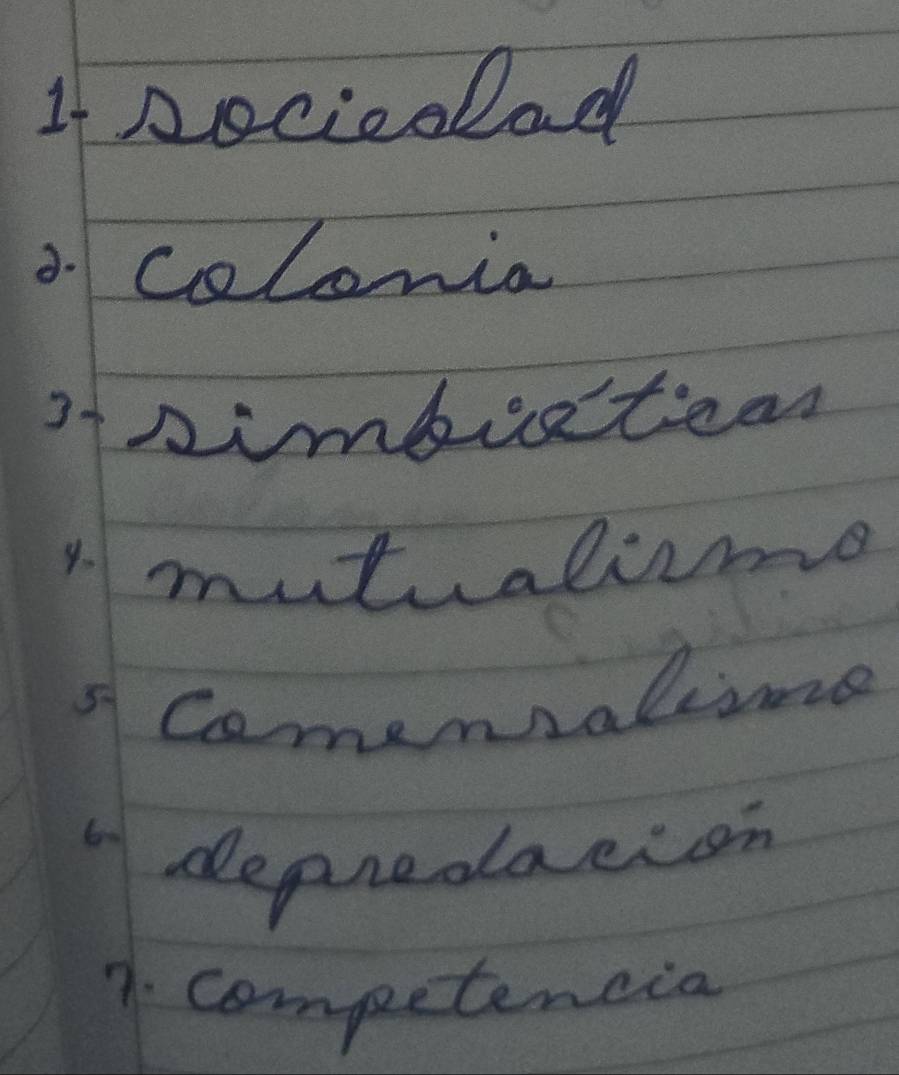 1- sociedad
2. colonia
3- simbióticas
4. mutualismo
5- comensalismo
6- depredación
7. competencia